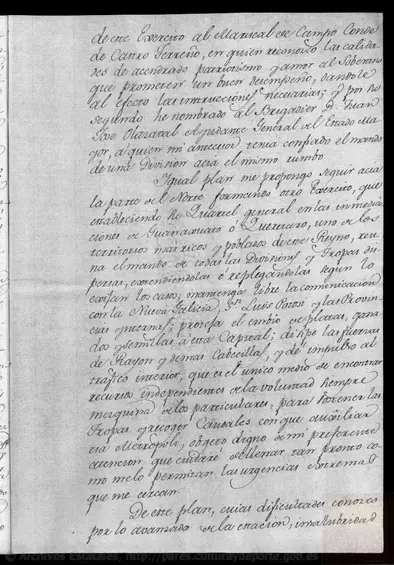 de este Exercito al Mariscal de Campo Conde
de Castro Terreño, en quien reconozco las calida
des de acendrado patriotismo y amor al Soberano
que prometen un buen desempeño, dandole
al efecto las instrucciones necesarias; y por su
segundo he nombrado al Brigadier Dn. Juan
José Olazaval Ayudante General del Estado Ma
yor, a quien mi antecesor tenia confiado el mando
de una Division acia el mismo rumbo.
Igual plan me propongo seguir acia
la parte del Norte formando otro Exercito, que
estableciendo su Quartel general en las inmedia
ciones de Guanaxuato ó Queretaro, uno de los
territorios mas ricos y poblados de este Reyno, reu
na el mando de todas las Divisiones y Tropas dis
persas, extendiendolas ó replegandolas segun lo
exijan los casos, mantenga libre la comunicacion
con la Nueva Galicia, Sn. Luis Potosi y las Provin
cias internas; proteja el embio de platas, gana
dos y semillas á esta Capital; disipe las fuerzas
de Rayon y demas Cabecillas, y dé impulso al
trafico interior, que es el unico medio de encontrar
recursos independientes de la voluntad siempre
mezquina de los particulares, para sostener las
Tropas y recoger Caudales con que auxiliar
esa Metropoli, objeto digno de mi preferente
atencion que cuidaré de llenar tan pronto co
mo me lo permitan las urgencias extremas
que me cercan.
De este plan, cuias dificultades conozco
por lo avanzado de la estacion, insalubridad